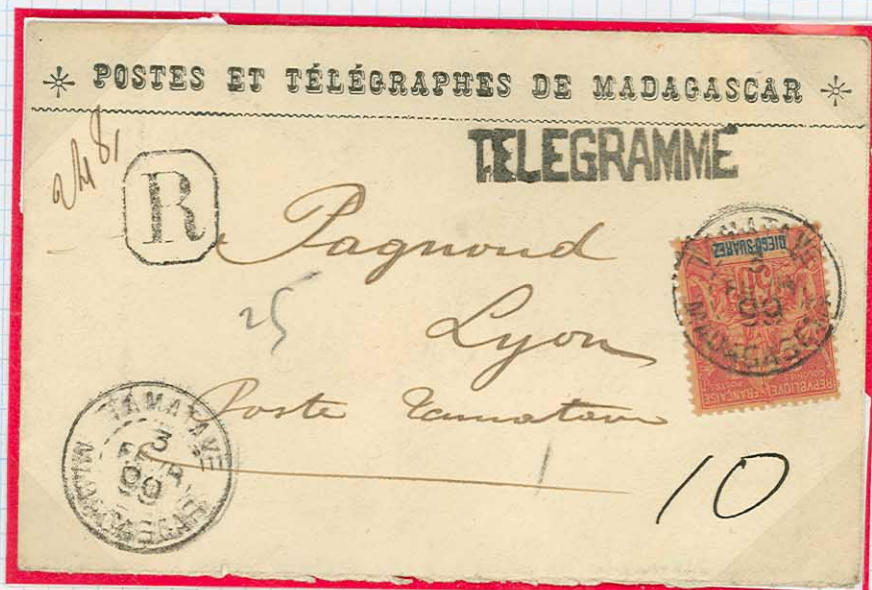 POSTES ET TÉLÉGRAPHES DE MADAGASCAR
TELEGRAMME
R
Pagnoud
25
Lyon
Poste Tamatave
10
TAMATAVE
3
FEVR.
99
MADAGASCAR
TAMATAVE
3
FEVR
99
MADAGASCAR
DIEGO-SUAREZ
50
REPUBLIQUE FRANÇAISE
COLONIES
POSTES